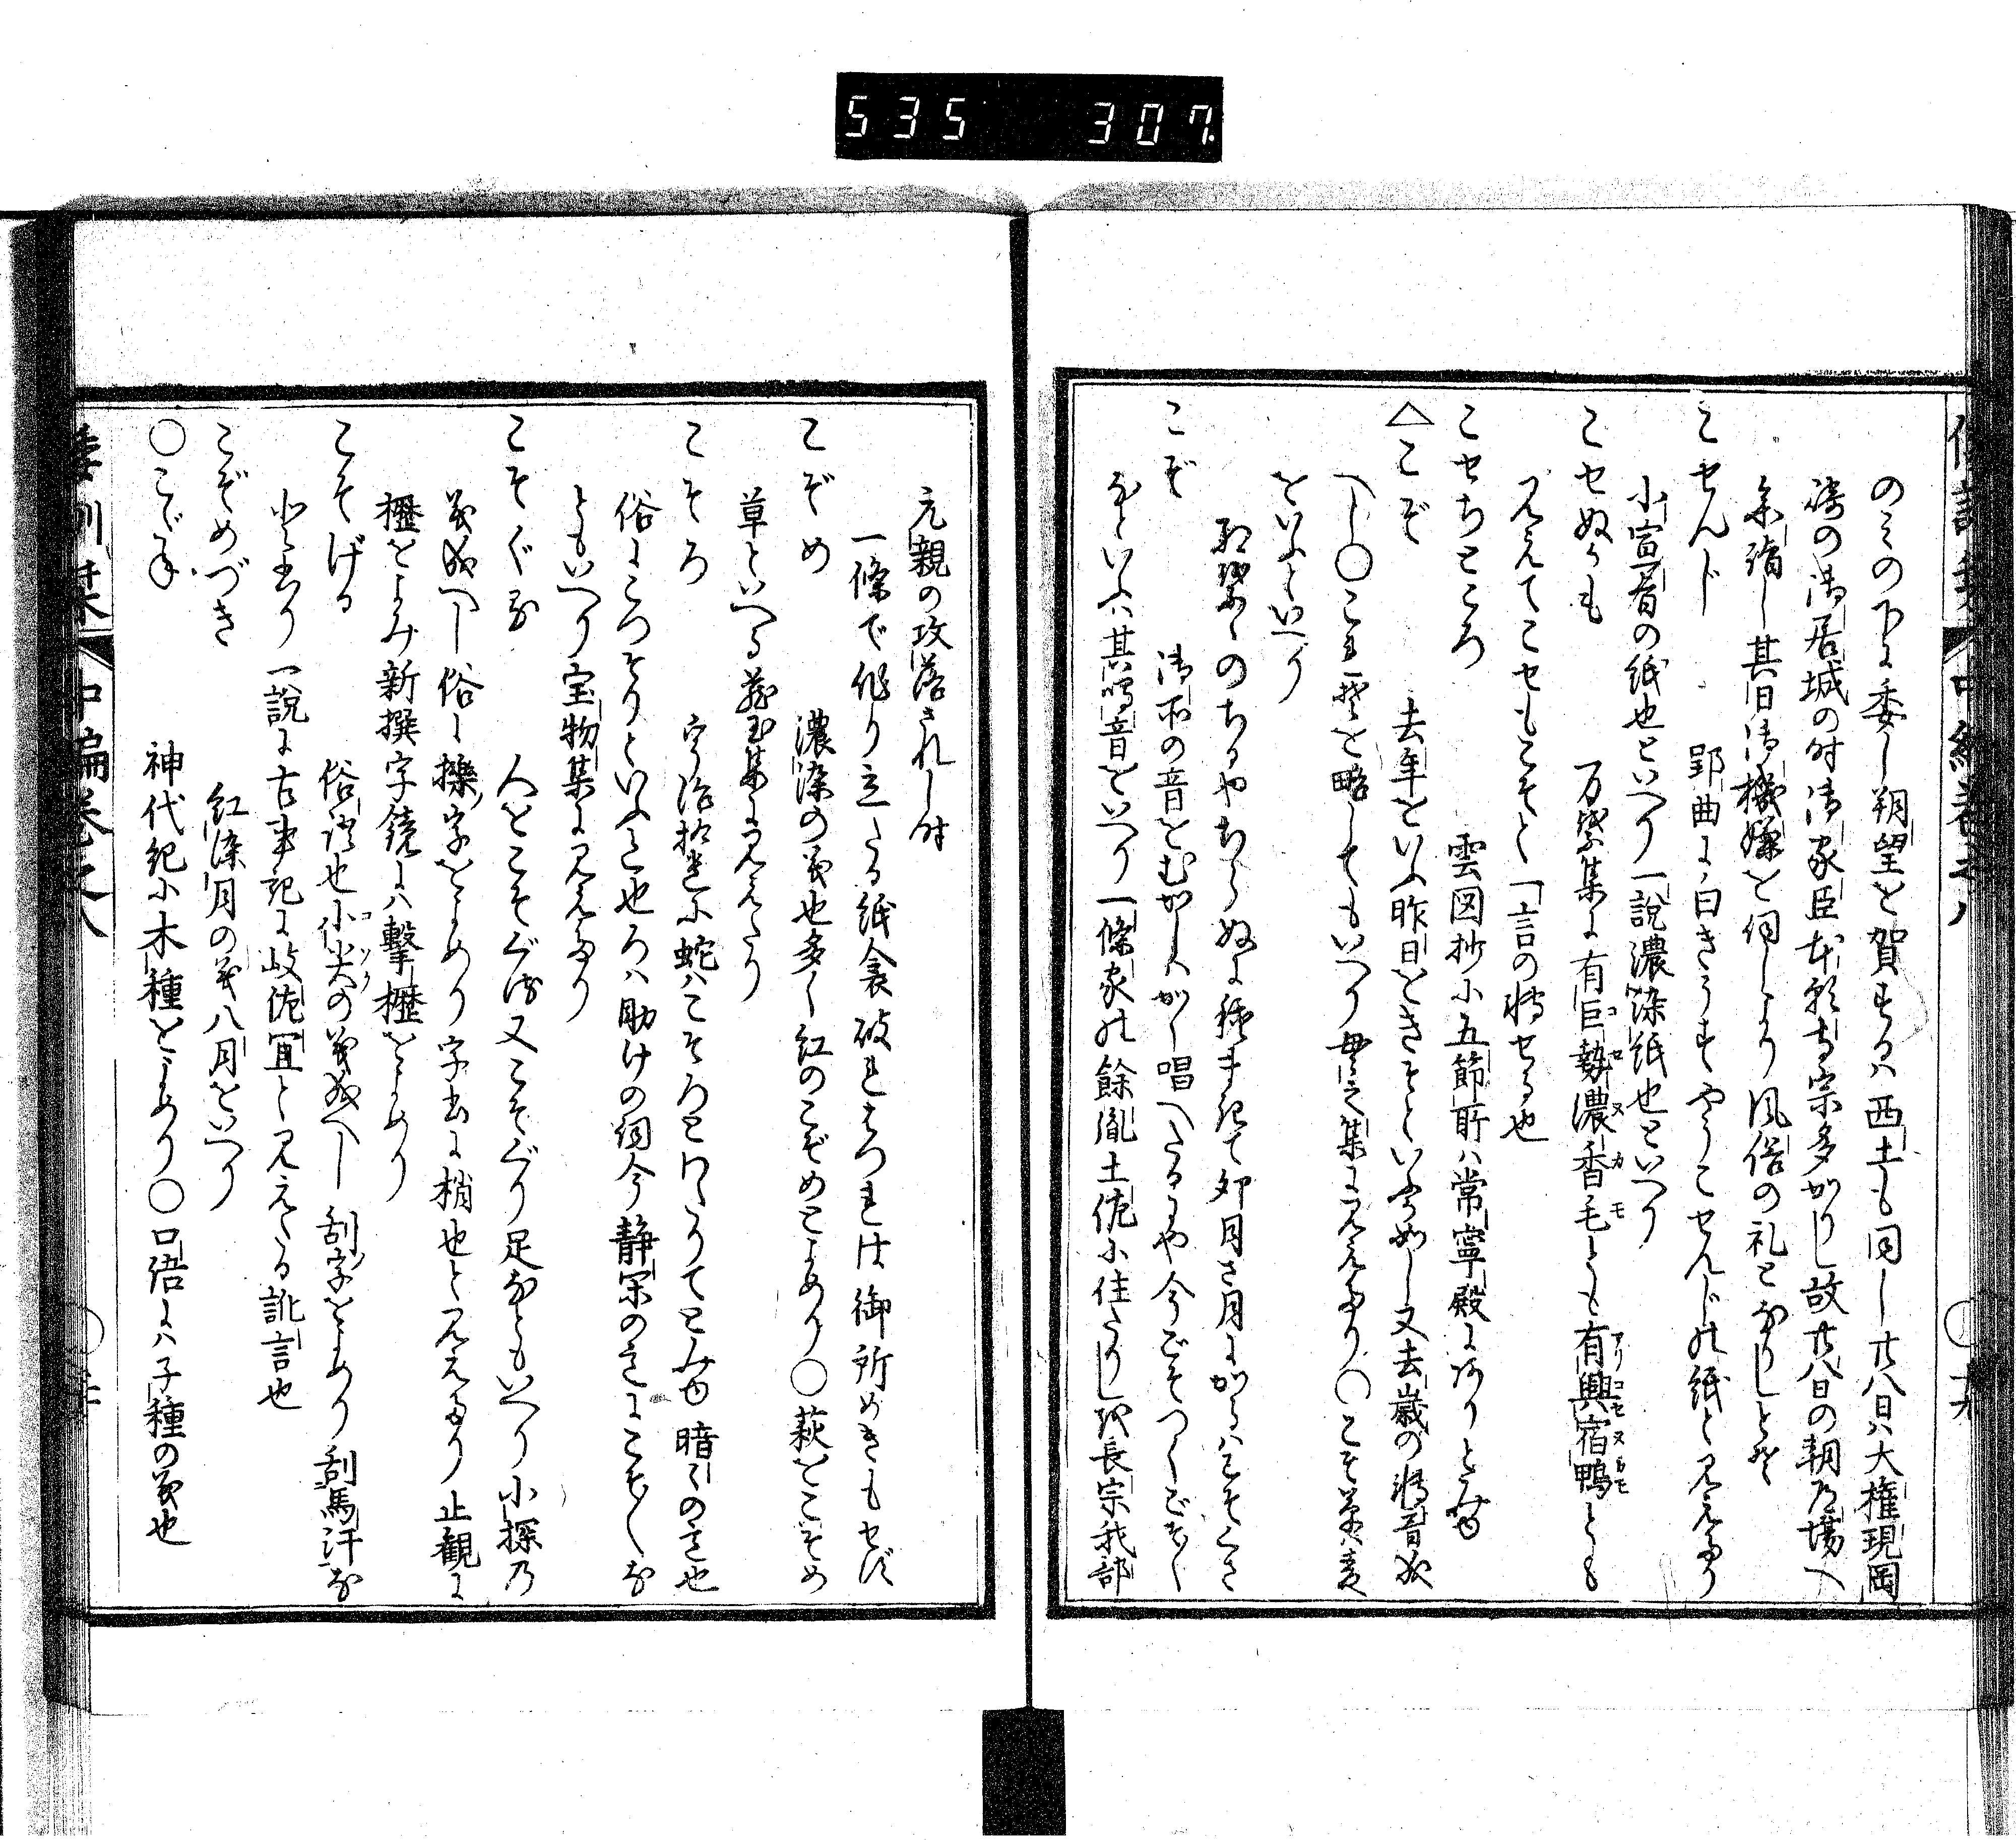 535 307
のミの下に委し朔望を賀するハ西土も同し廿八日ハ大権現岡
崎の御居城の時御家臣本願寺宗多かりし故廿八日の朝道場へ
参詣し其日御機嫌を伺しより風俗の礼となりしとそ
こせんじ 郢曲に曰きうすやうこせんじの紙と見えたり
小宣旨の紙也といへり一説濃染紙也といへり
こせぬかも 万葉集に有巨勢濃香毛とも有興宿鴨とも
見えてこせもこそと一言の轉せる也
こせちところ 雲図抄に五節所ハ常寧殿にありとみゆ
△こぞ 去年をいふ昨日をきそといふか如し又去歳の轉音成
へし○これ是を略してもいへり無名集に見えたり○こそ草ハ麦
をいふといへり
のちるやちらぬに種まきて卯月さ月にかるハこそくさ
こぞ 御所の音をむかしハかく唱へたるにや今ごそつくごなと
をといふハ其鳴音をいへり一條家の餘胤土佐に住たりしが長宗我部
元親の攻落されし時
一條で作り立たる紙衾破れはつれは御所めきもせず
こぞめ 濃染の義也多く紅のこぞめとよめり○萩をこぞめ
草といへる蔵玉集に見えたり
こそろ 宇治拾遺に蛇ハこそろとわたりてとみゆ暗々の意也
俗にころそりといふこと也ろハ助けの詞今静閑の意にこそ〱な
ともいへり宝物集に見えたり
こそぐる 人をこそぐる又こそぐり足なともいへり小探乃
義成へし俗に擽ノ字をよめり字書に捎也と見えたり止観に
櫪をよみ新撰字鏡にハ撃櫪をよめり
こそげる 俗語也小尖の義成へし刮ノ字をよめり刮馬汗な
と書り一説に古事記に岐佐宜と見えたる訛言也
こぞめづき 紅染月の義八月をいへり
○こだね 神代紀に木種をよめり○口語にハ子種の義也